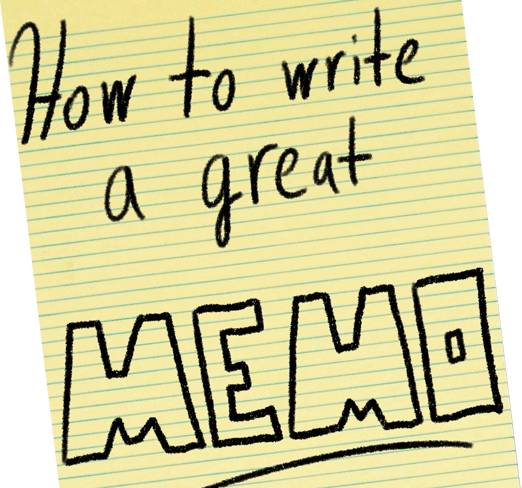 How to write
a great
MEMO